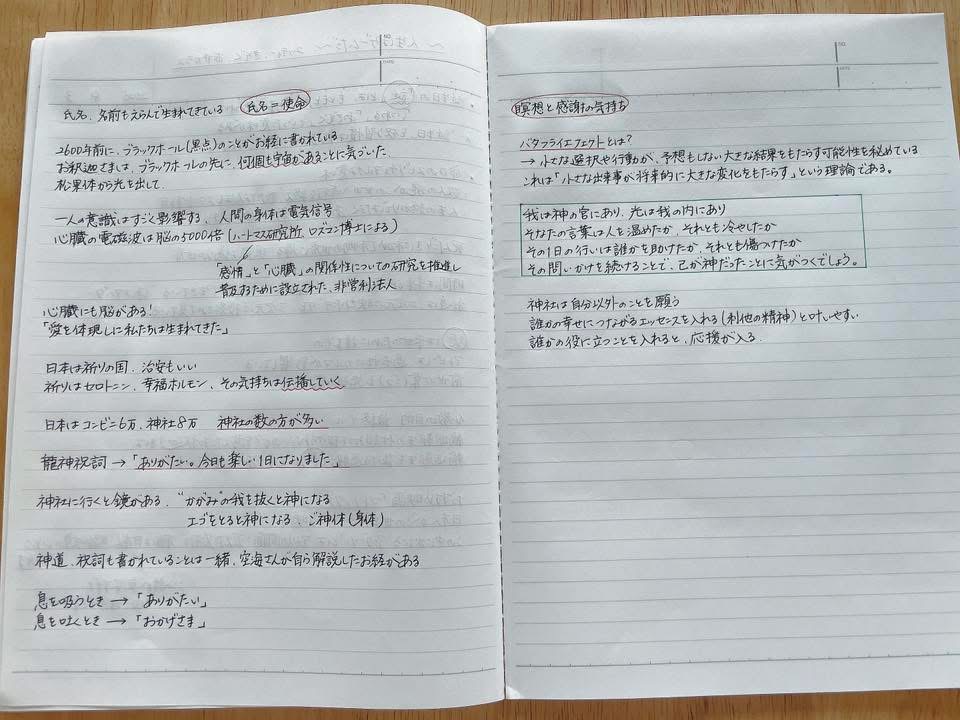 氏名、名前もえらんで生まれてきている 氏名=使命
2600年前に、ブラックホール(黒点)のことがお経に書かれている
お釈迦さまは、ブラックホールの先に、何個も宇宙があることに気づいた
松果体から光を出して
一人の意識はすごく影響する、人間の身体は電気信号
心臓の電磁波は脳の5000倍(ハートマス研究所、ロズマン博士による)
「感情」と「心臓」の関係性についての研究を推進し
普及するために設立された、非営利法人
心臓にも脳がある!
「愛を体現しに私たちは生まれてきた」
日本は祈りの国、治安もいい
祈りはセロトニン、幸福ホルモン、その気持ちは伝播していく
日本はコンビニ6万、神社8万 神社の数の方が多い
龍神祝詞→「ありがたい。今日も楽しい1日になりました」
神社に行くと鏡がある、"かがみ"の我を抜くと神になる
エゴをとると神になる、ご神体(身体)
神道、祝詞も書かれていることは一緒、空海さんが自ら解説したお経がある
息を吸うとき→「ありがたい」
息を吐くとき→「おかげさま」
NO.
DATE
瞑想と感謝の気持ち
バタフライエフェクトとは?
→小さな選択や行動が、予想もしない大きな結果をもたらす可能性を秘めている
これは「小さな出来事が将来的に大きな変化をもたらす」という理論である。
我は神の宮にあり、光は我の内にあり
そなたの言葉は人を温めたか、それとも冷やしたか
その1日の行いは誰かを助けたか、それとも傷つけたか
その問いかけを続けることで、己が神だったことに気がつくでしょう。
神社は自分以外のことを願う
誰かの幸せにつながるエッセンスを入れる(利他の精神)と叶いやすい
誰かの役に立つことを入れると、応援が入る。